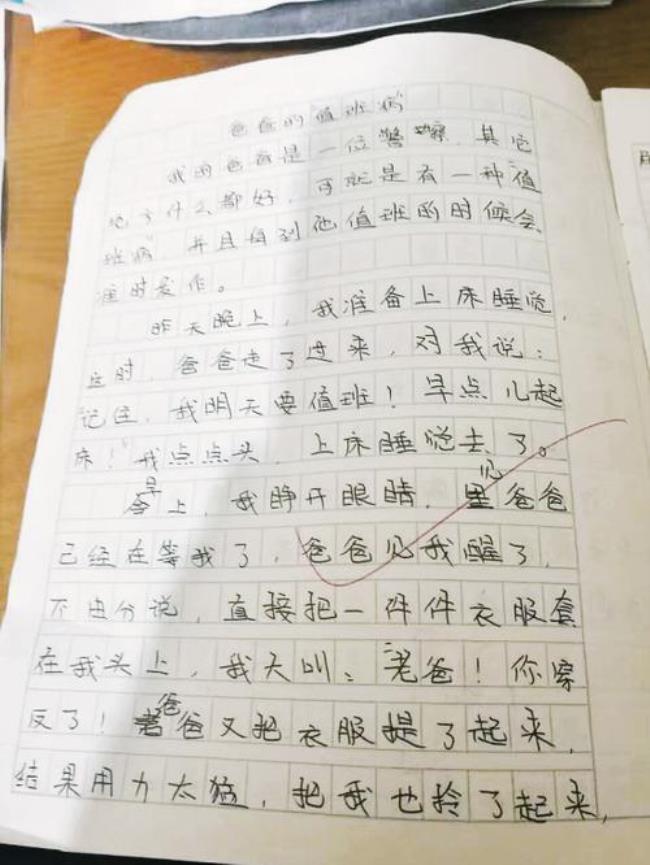 爸爸的值班病
我的爸爸是一位警察，其它
地方什么都好，可就是有一种“值
班病”，并且每到他值班的时候会
准时发作。
昨天晚上，我准备上床睡觉，
这时，爸爸走了过来，对我说：
“记住，我明天要值班！早点儿起
床！”我点点头，上床睡觉去了。
早上，我睁开眼睛，见爸爸
已经在等我了，爸爸见我醒了，
不由分说，直接把一件件衣服套
在我头上，我大叫：“老爸！你穿
反了！爸爸又把衣服提了起来，
结果用力太猛，把我也拎了起来，